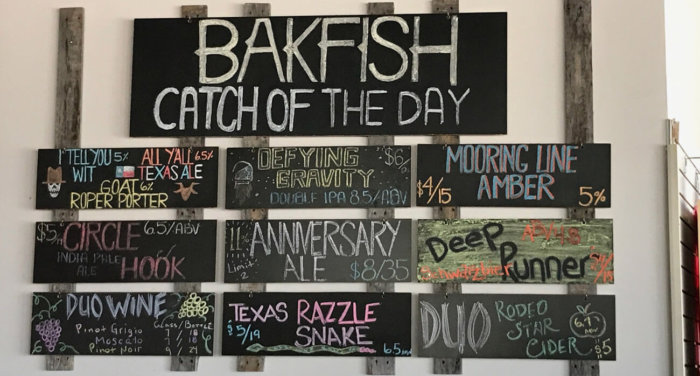 BAKFISH
CATCH OF THE DAY
I TELL YOU 5%
WIT
ALL Y'ALL 6.5%
TEXAS ALE
GOAT 6%
ROPER PORTER
DEFYING $6/
GRAVITY
DOUBLE IPA 8.5/ABV
MOORING LINE
AMBER
$4/15
5%
$5/ CIRCLE 6.5/ABV
INDIA PALE
ALE
HOOK
11%
Limit
2
ANNIVERSARY
ALE $8/35
DEEP
Runner
Schwarzbier
DUO WINE
Glass/Bottle
Pinot Grigio 7 / 18
Moscato 7 / 18
Pinot Noir 9 / 24
TEXAS RAZZLE
$5/19 SNAKE
6.5
DUO
RODEO
STAR
CIDER
ABV
$5